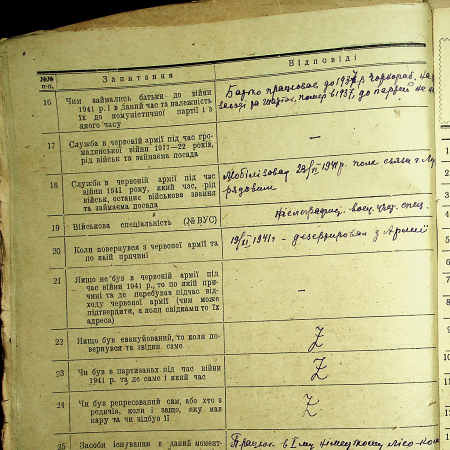 №№ п-п.
Запитання
Відповіді
16
Чим займались батьки до війни
1941 р. і в даний час та належність
їх до комуністичної партії і з
якого часу
Батко працював до 1937 р.
помер в 1937, до партії не
17
Служба в червоній армії під час гро-
мадянської війни 1917—22 років,
рід військ та займаєма посада
—
18
Служба в червоній армії під час
війни 1941 року, який час, рід
військ, останнє військове звання
та займаєма посада
Мобілізован 1941 р. полк
рядовим
19
Військова спеціальність (№ ВУС)
спец.
20
Коли повернувся з червоної армії та
по якій причині
1941 г - дезертирован з Армії
21
Якщо не був в червоній армії під
час війни 1941 р., то по якій при-
чині та де перебував підчас від-
ходу червоної армії (чим може
підтвердити, а коли свідками то їх
адреса)
—
22
Якщо був евакуйований, то коли по-
вернувся та звідки саме
Z
23
Чи був в партизанах під час війни
1941 р. та де саме і який час
Z
24
Чи був репресований сам, або хто з
родичів, коли і защо, яку мав
кару та чи відбув її
Z
25
Засоби існування в даний момент-
Працює в І му